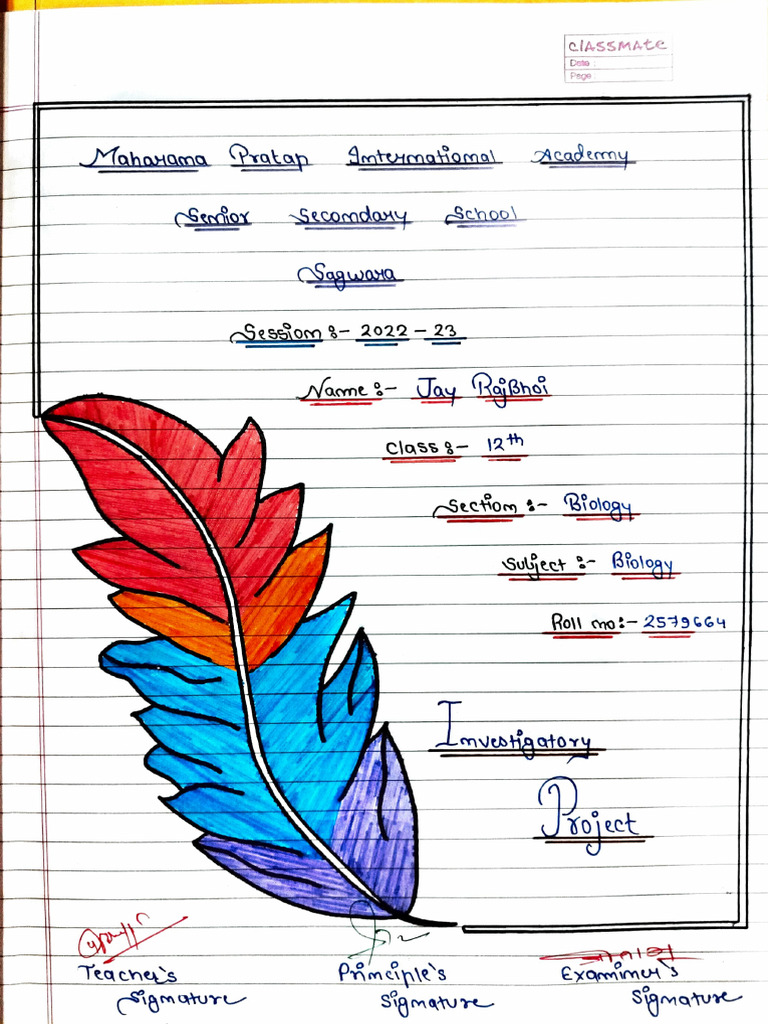 CLASSMATE
Date :
Page :
Maharana Pratap International Academy
Senior Secondary School
Sagwara
Session :- 2022 - 23
Name :- Jay RajBhoi
Class :- 12th
Section :- Biology
Subject :- Biology
Roll no :- 2579664
Investigatory
Project
Teacher's Signature
Principle's Signature
Examiner's Signature